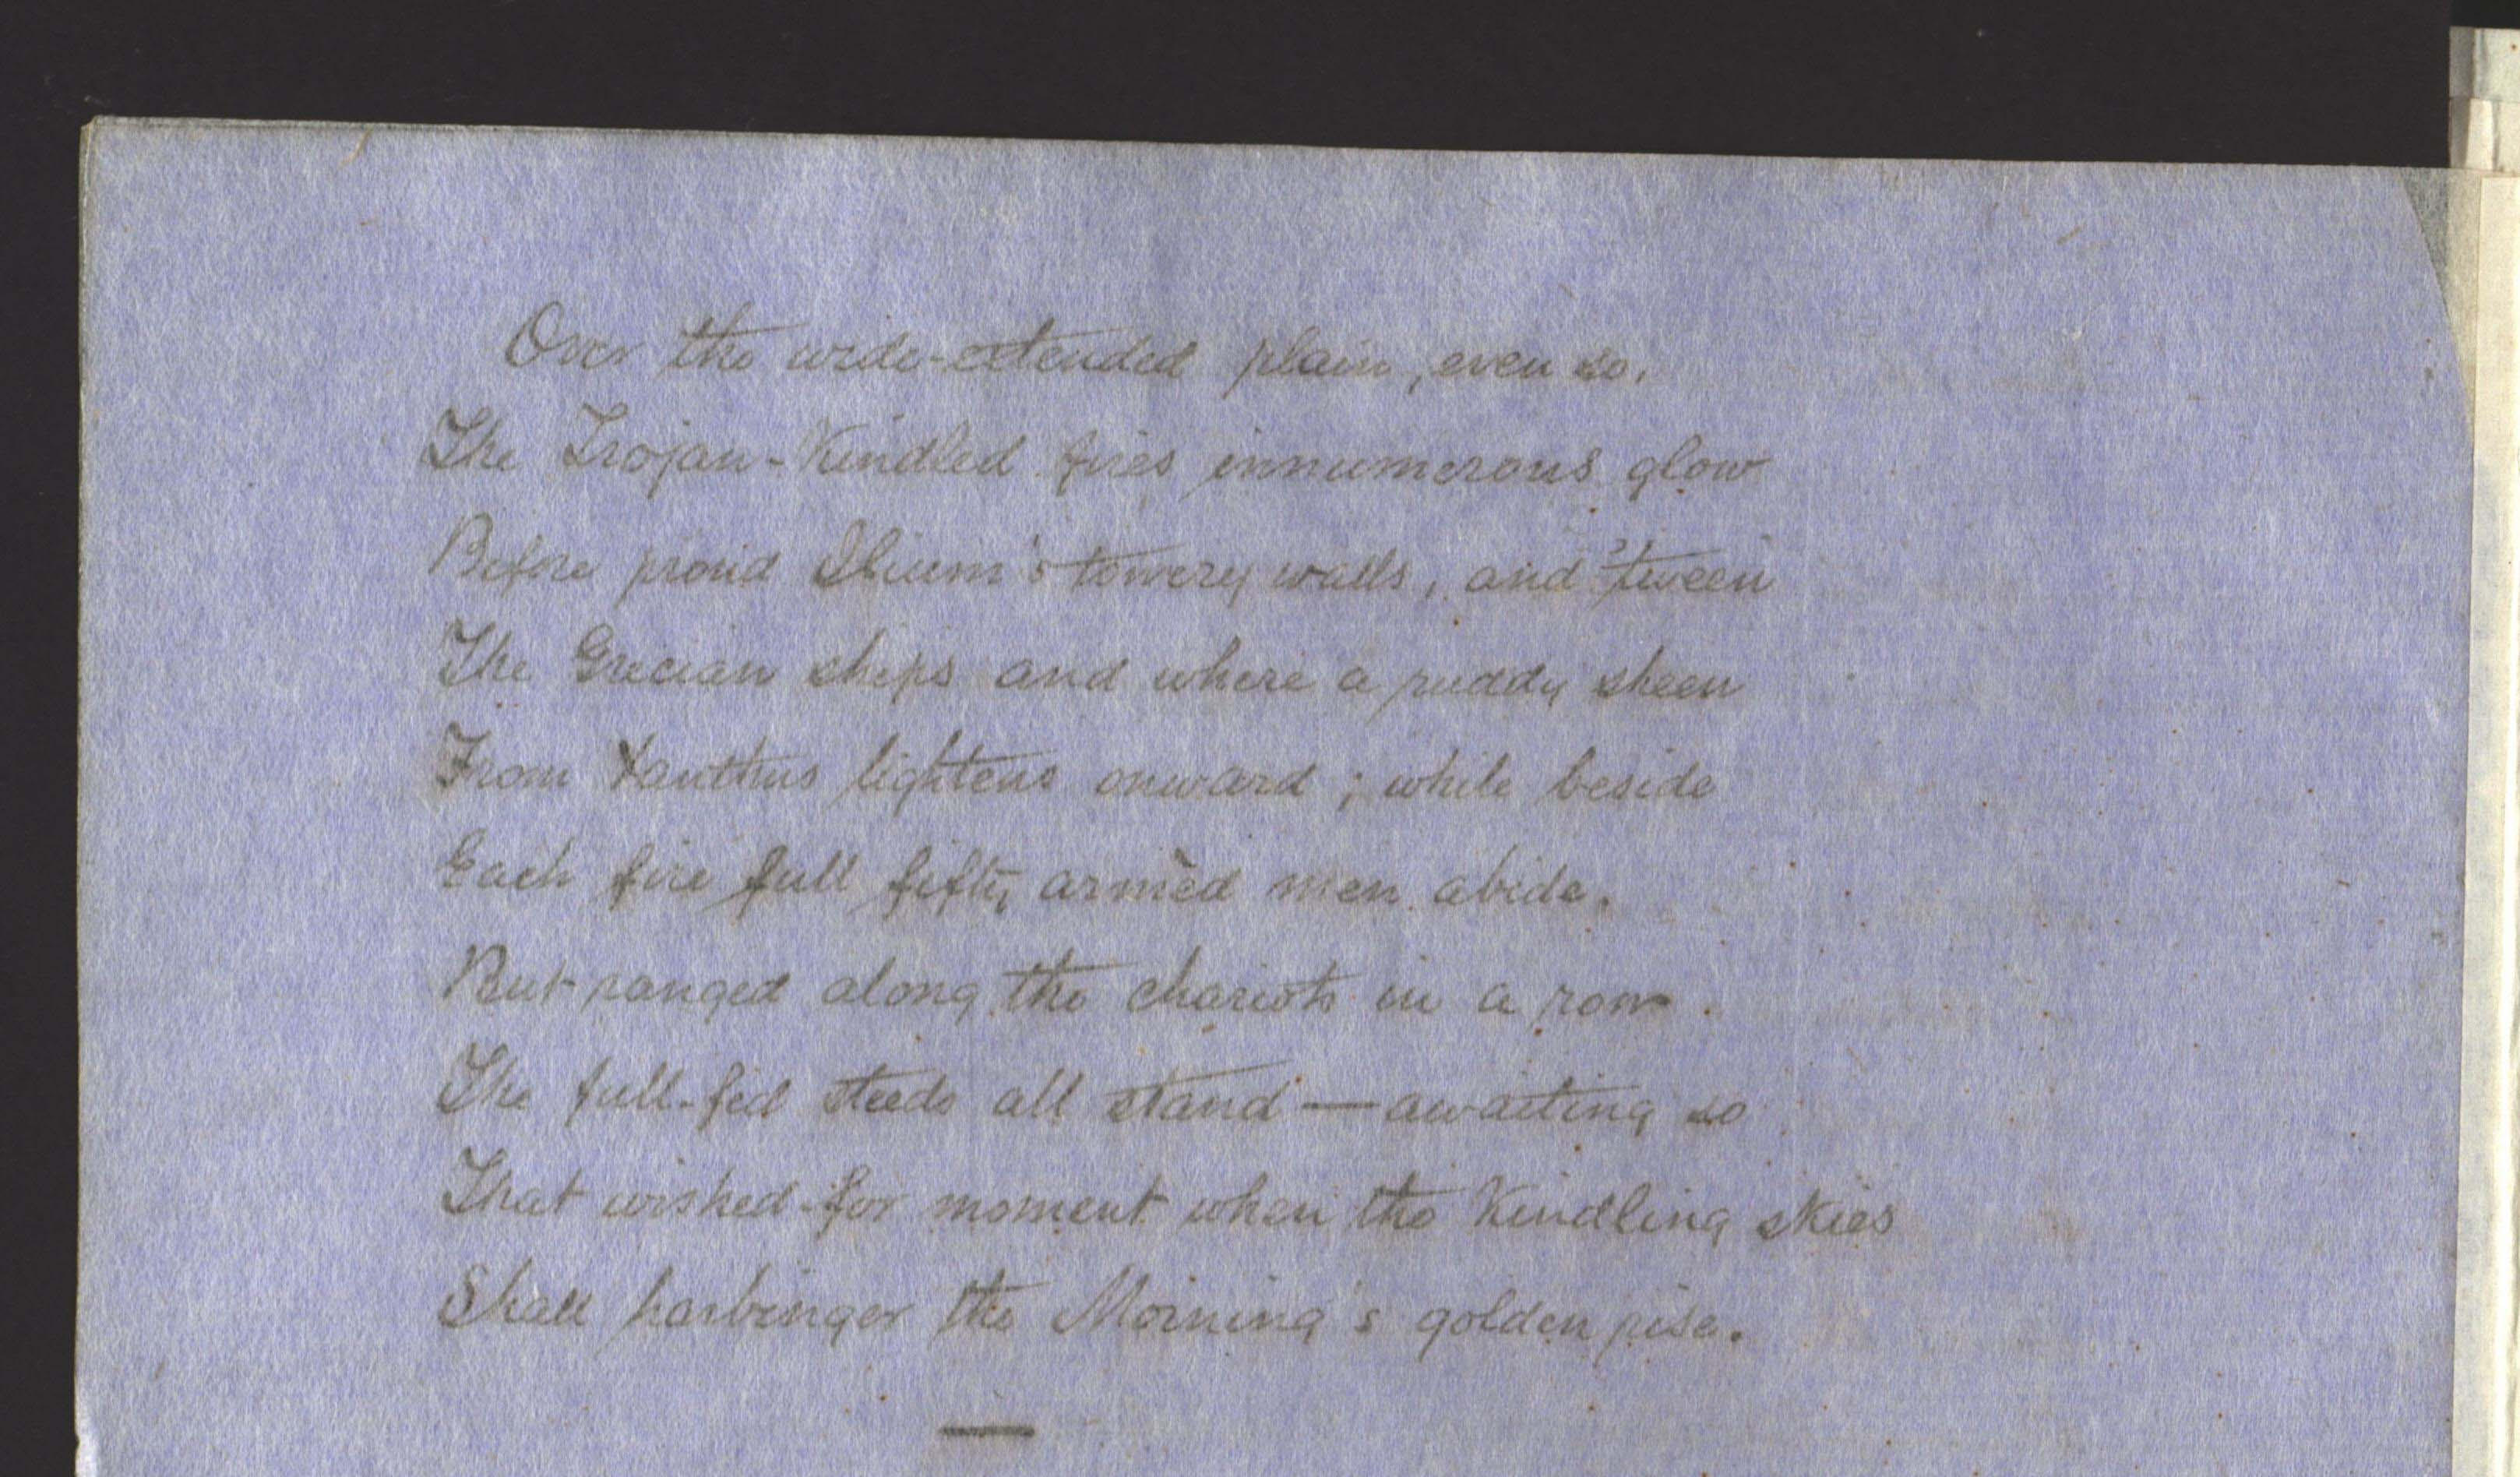 Over the wide-extended plain, even so,
The Trojan-Kindled fires innumerous glow
Before proud Ilium's towery walls, and 'tween
The Grecian ships and where a ruddy sheen
From Xanthus lightens onward; while beside
Each fire full fifty armèd men abide.
But ranged along the chariots in a row.
The full-fed steeds all stand — awaiting so
That wished-for moment when the Kindling skies
Shall harbinger the Morning's golden rise.